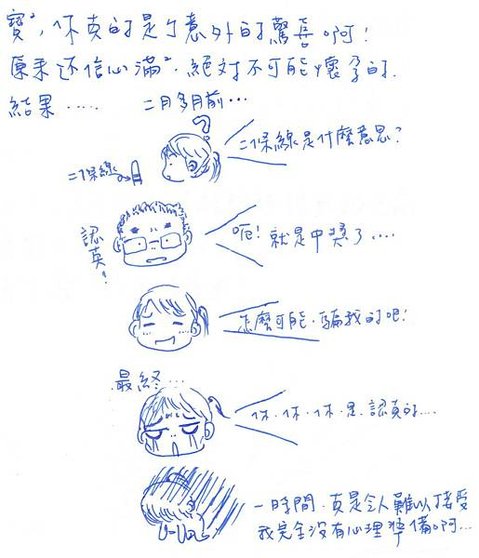 寶², 你真的是个意外的驚喜啊!
原來还信心滿², 絕对不可能懷孕的.
結果.....
二月多月前...
二條線是什麼意思?
二條線
呃! 就是中獎了....
認真!
怎麼可能.騙我的吧!
最終...
你.你.你.是.認真的....
一時間.真是令人難以接受
我完全没有心理準備啊...